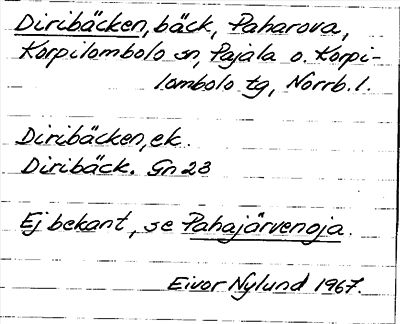 Diribäcken, bäck, Paharova,
Korpilombolo sn, Pajala o. Korpi-
lombolo tg, Norrb. l.
Diribäcken, ek.
Diribäck. Gn 23
Ej bekant, se Pahajärvenoja.
Eivor Nylund 1967.